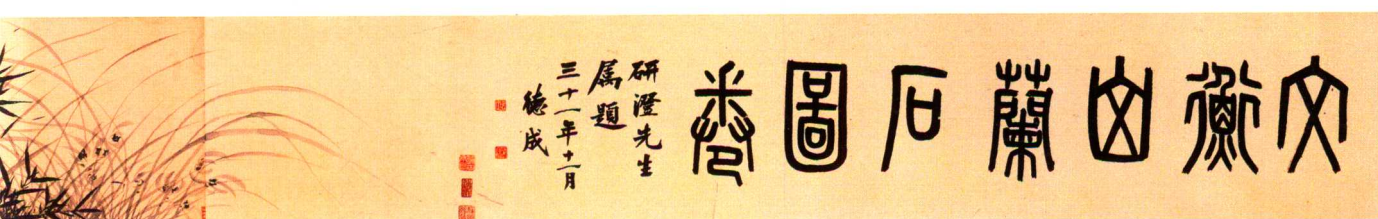 文衡山蘭石圖卷
研澄先生
属題
三十一年十一月
德成